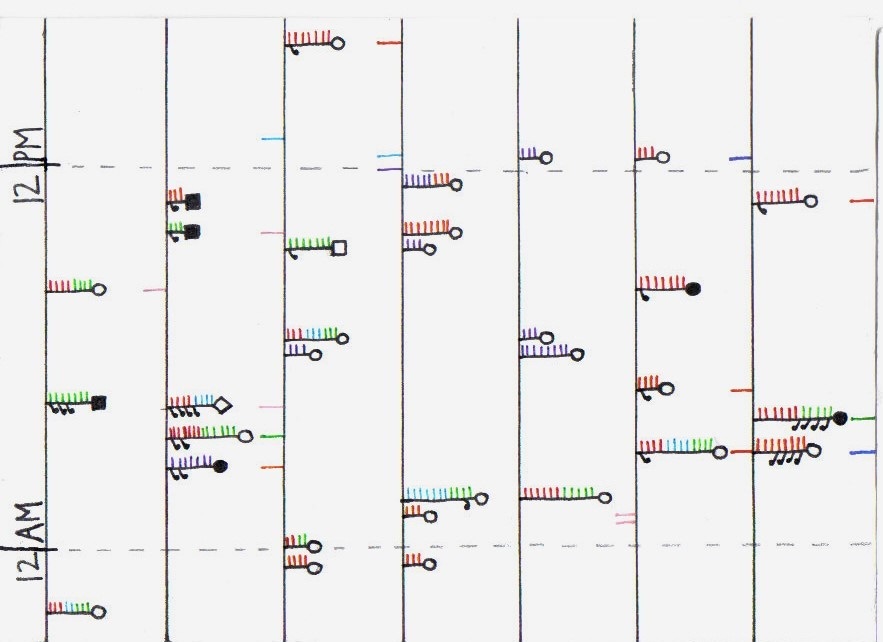 12 PM
12 AM